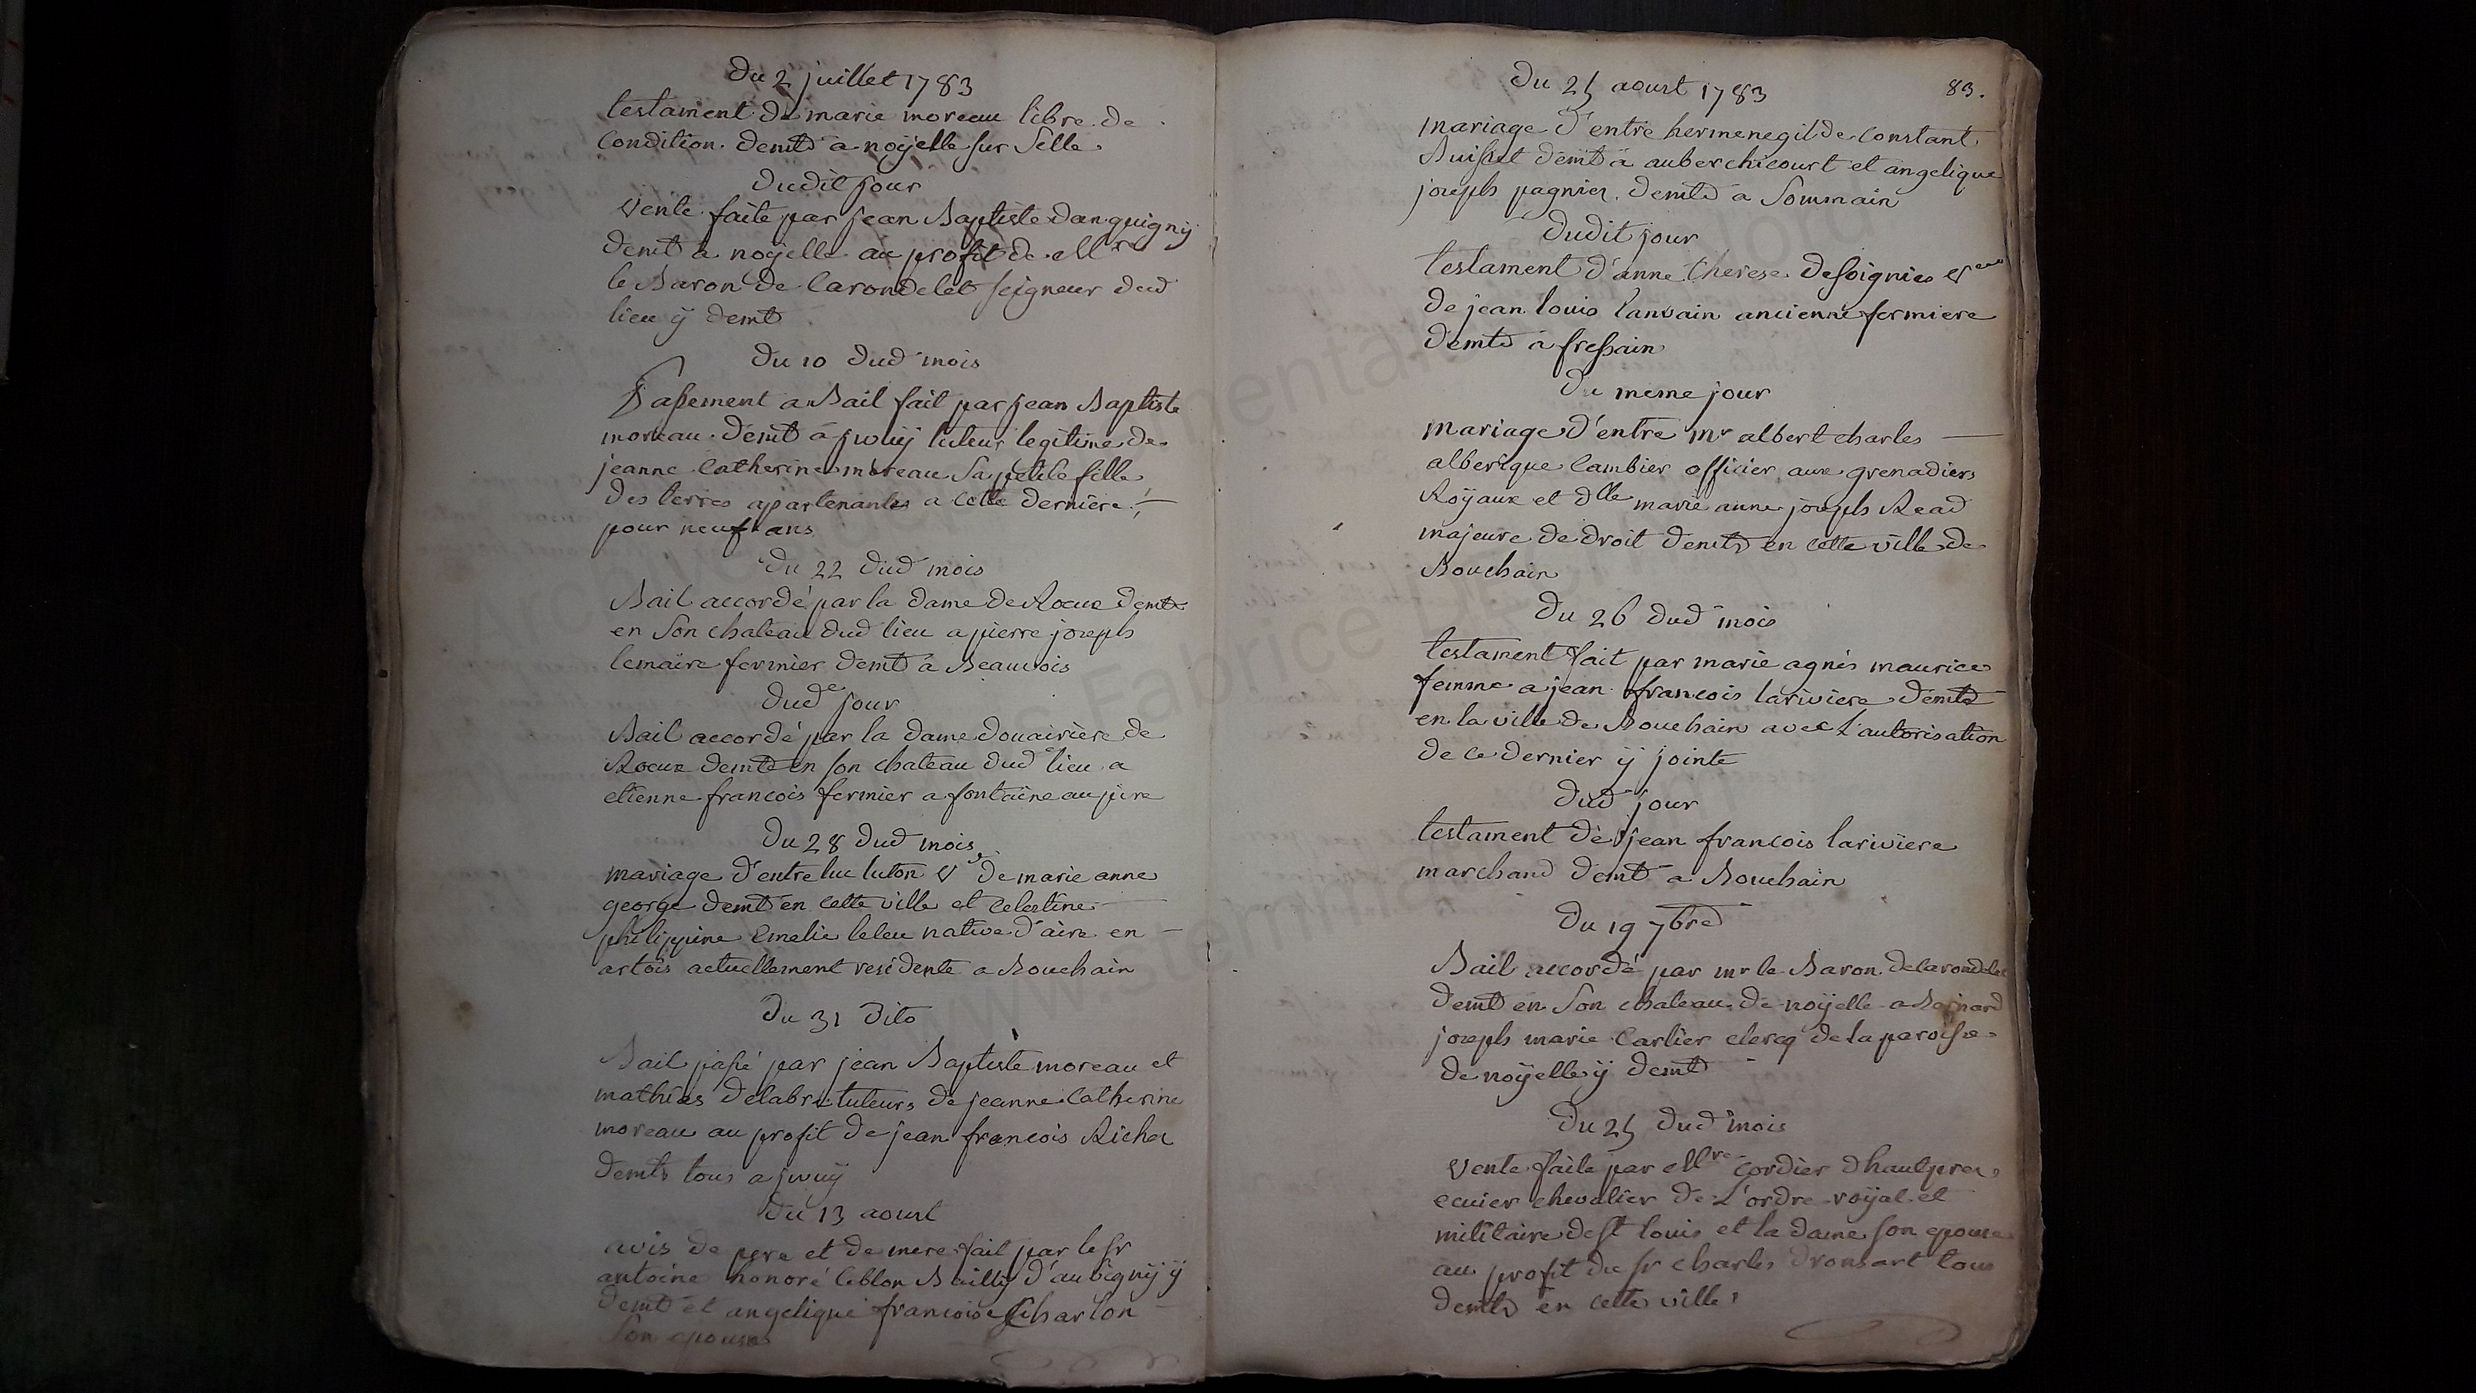 Du 2 juillet 1783
testament de marie moreau libre de
condition demte a noÿelle sur Selle
dudit jour
vente faite par jean Baptiste danquigny
demt a noÿelle au profit de Mre
le Baron de Carondelet seigneur dud
lieu ÿ demt
Du 10 dud mois
passement a Bail fait par jean Baptiste
moreau demt a jwuÿ tuteur legitime de
jeanne Catherine moreau sa petite fille
des terres apartenantes a cette derniere
pour neuf ans
Du 22 dud mois
Bail accordé par la dame de Roeux demte
en son chateau dud lieu a pierre joseph
lemaire fermier demt a Beauvois
dud jour
Bail accordé par la dame douairière de
Roeux demte en son chateau dud lieu a
etienne francois fermier a fontaine aupire
Du 28 dud mois
mariage d'entre luc luton vf de marie anne
george demt en cette ville et Celestine
philippine Emelie leleu native d'aire en
artois actuellement residente a Bouchain
Du 31 dito
Bail passé par jean Baptiste moreau et
mathias delabre tuteurs de jeanne Catherine
moreau au profit de jean francois Richez
demts tous a jwuÿ
Du 13 aoust
avis de pere et de mere fait par le sr
antoine honoré leblon Bailly d'aubignÿ ÿ
demt et angelique francoise Charlon
son epouse
Du 25 aoust 1783
83.
mariage d'entre hermenegilde Constant
Buisset demt a auberchicourt et angelique
joseph pagniez demte a Sommain
dudit jour
testament d'anne therese desoignies veuve
de jean louis Lanvain ancienne fermiere
demte a fressain
Du meme jour
mariage d'entre mr albert charles
alberique Cambier officier aux grenadiers
Roÿaux et dlle marie anne joseph Read
majeure de droit demts en cette ville de
Bouchain
Du 26 dud mois
testament fait par marie agnès maurice
femme a jean francois lariviere demte
en la ville de Bouchain avec l'autorisation
de ce dernier ÿ jointe
dud jour
testament de jean francois lariviere
marchand demt a Bouchain
Du 19 7bre
Bail accordé par mr le Baron de Carondelet
demt en son chateau de noÿelle a Bernard
joseph marie Carlier clercq de la paroisse
de noÿelle ÿ demt
Du 25 dud mois
vente faite par Mre Cordier dhautprez
ecuier chevalier de l'ordre roÿal et
militaire de st louis et la dame son epouse
au profit du sr charles dronsart tous
demts en cette ville